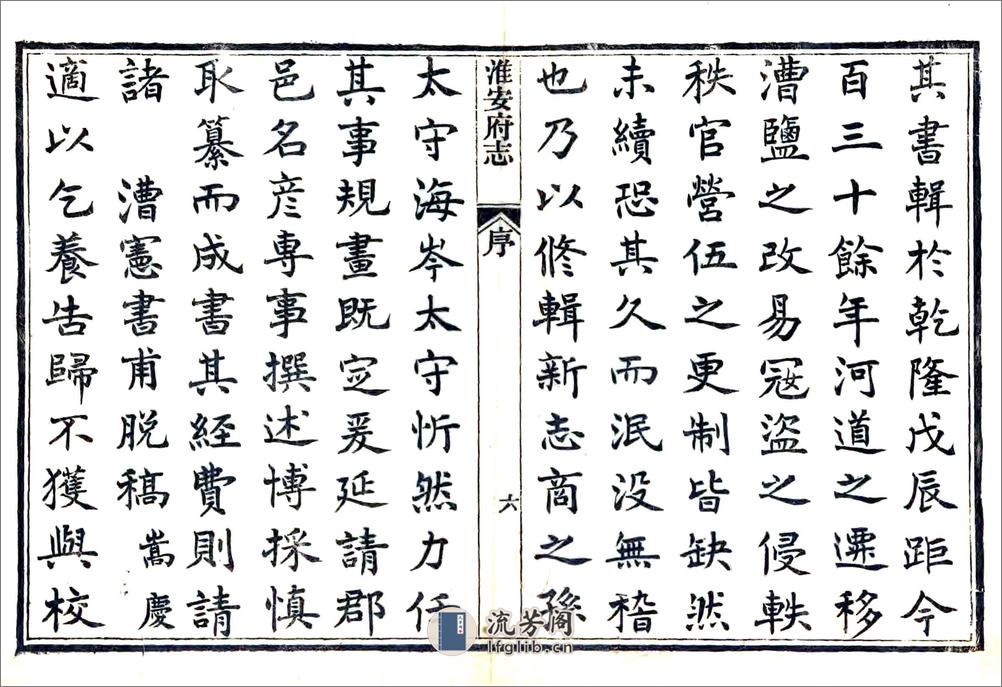 其書輯於乾隆戊辰距今
百三十餘年河道之遷移
漕鹽之改易冦盜之侵軼
秩官營伍之更制皆缺然
未續恐其久而泯没無稽
也乃以修輯新志商之孫
淮安府志
序
六
太守海岑太守忻然力任
其事規畫既定爰延請郡
邑名彦專事撰述博採慎
取纂而成書其經費則請
諸
漕憲書甫脱稿嵩慶
適以乞養告歸不獲與校
流芳阁
lfglib.cn